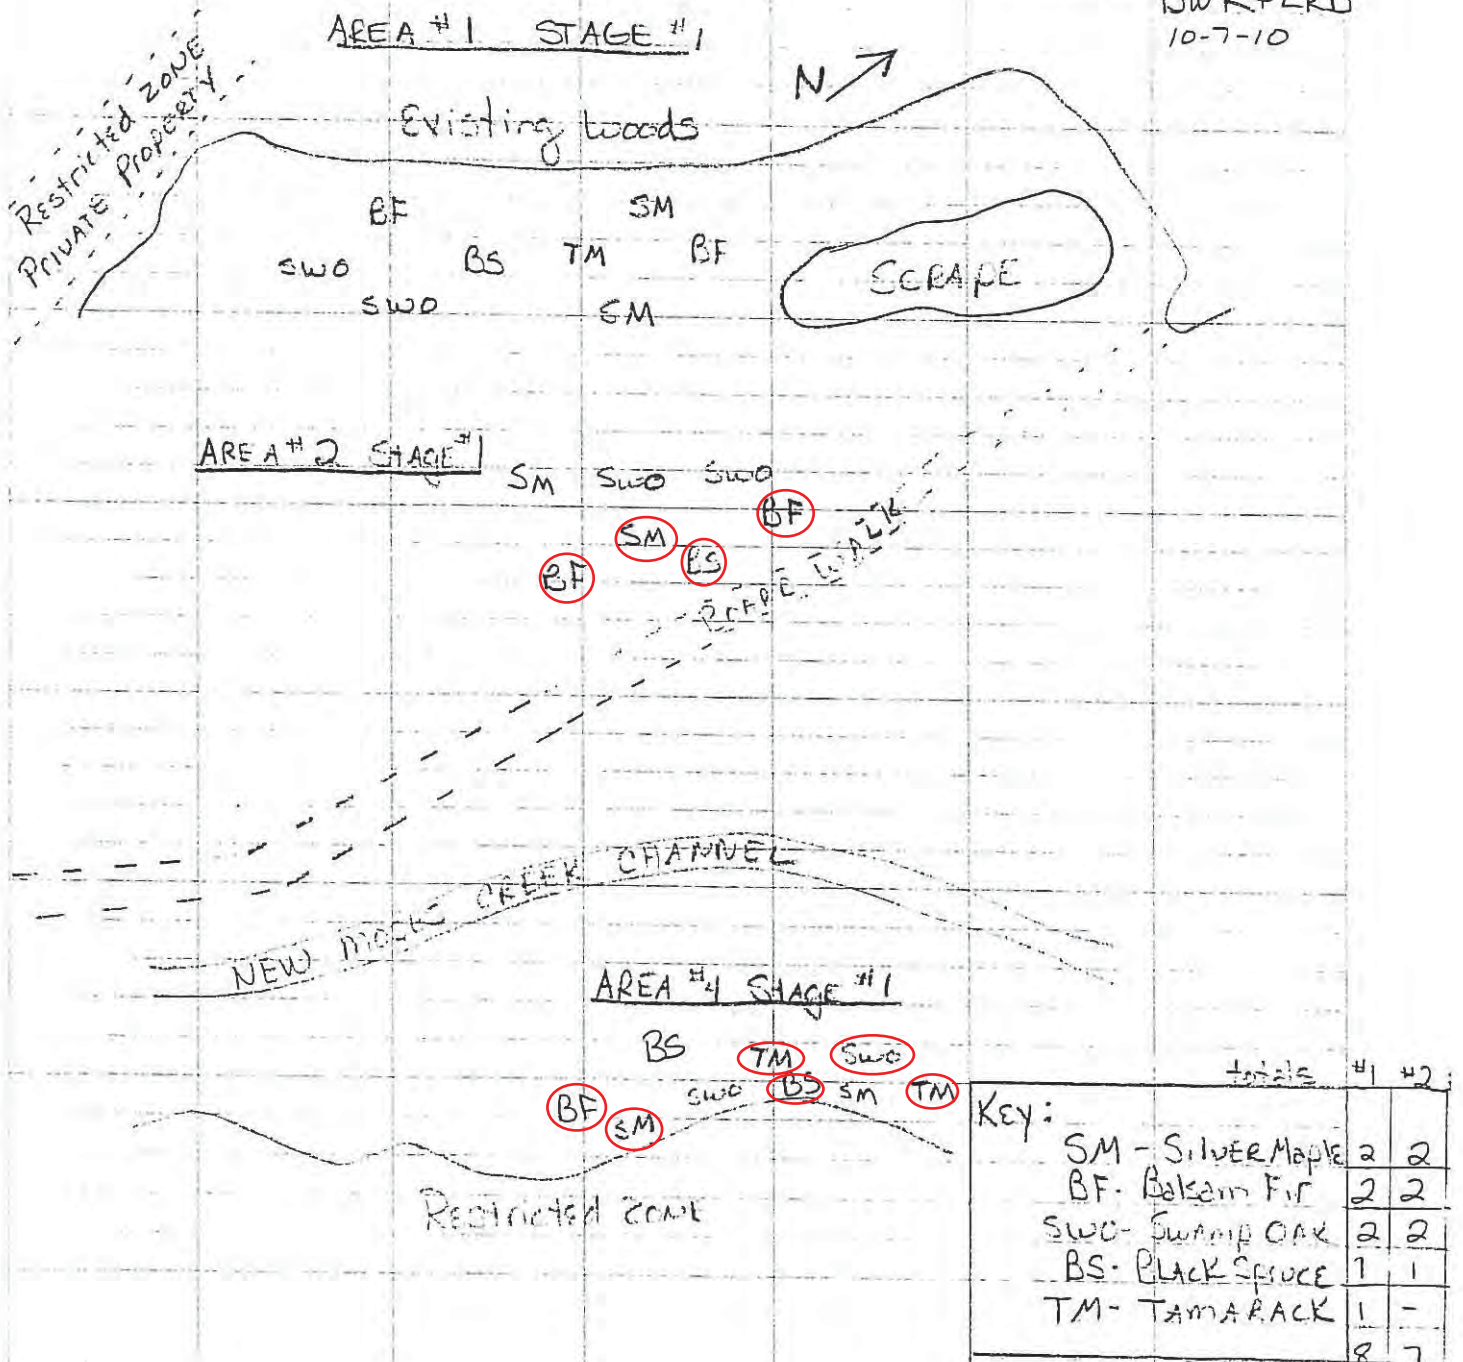 10-7-10
AREA #1 STAGE #1
N
Restricted ZONE
PRIVATE Property
Existing Woods
BF SM
SWO BS TM BF
SWO SM
SCRAPE
AREA #2 STAGE #1
SM SWO SWO
BF
SM
BS
BF
WALK
NEW MOCKS CREEK CHANNEL
AREA #4 STAGE #1
BS TM SWO
SWO BS SM TM
BF
SM
Restricted ZONE
totals #1 #2
KEY:
SM - SILVER Maple 2 2
BF - Balsam Fir 2 2
SWO - SWAMP OAK 2 2
BS - BLACK SPRUCE 1 1
TM - TAMARACK 1 -
8 7